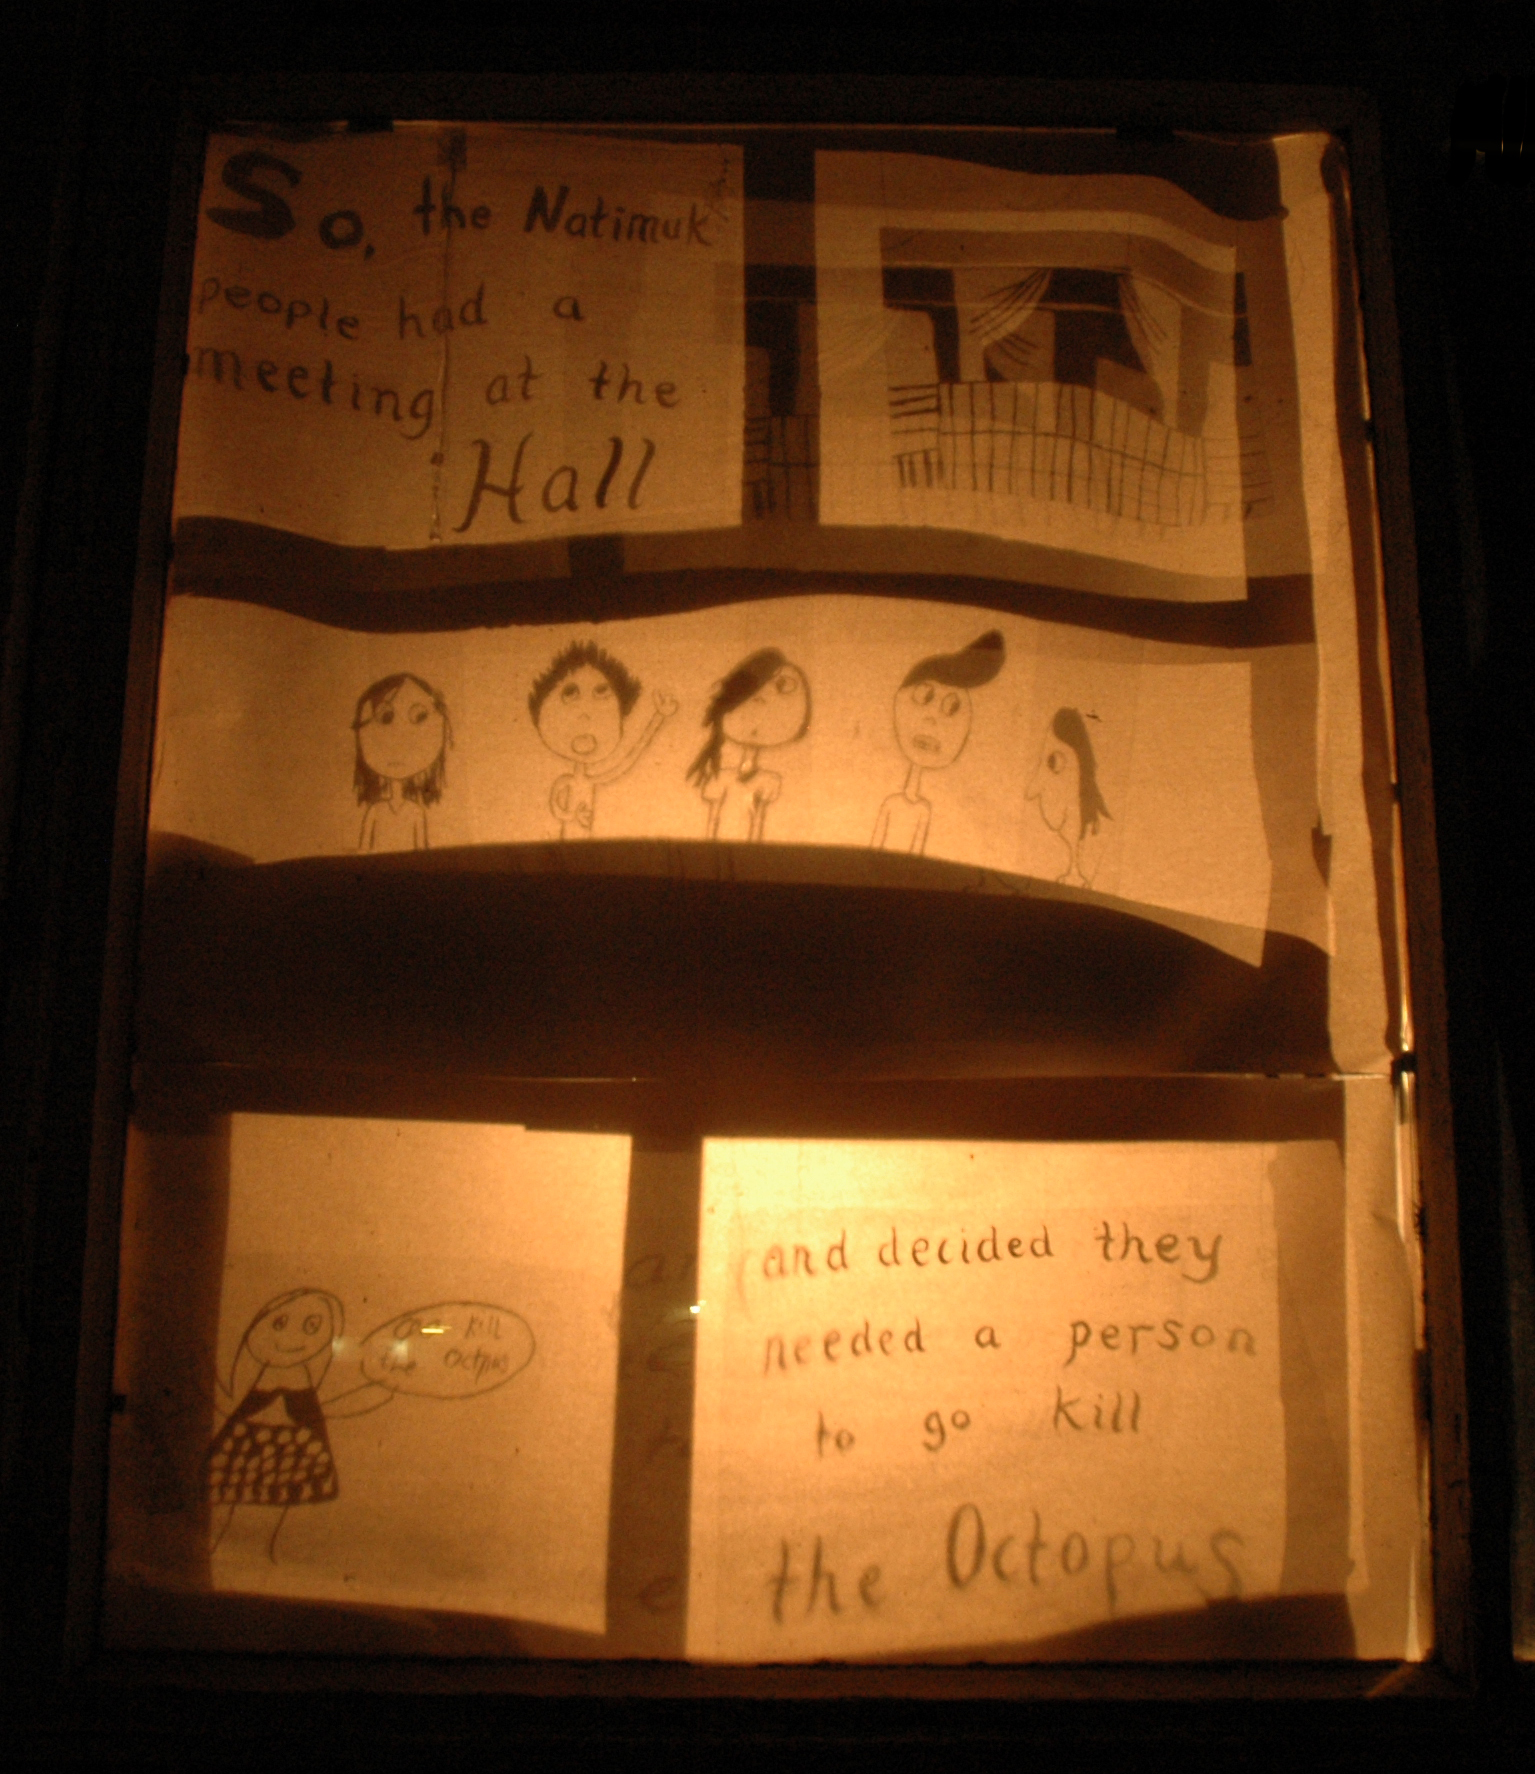 So, the Natimuk
people had a
meeting at the
Hall
kill
the Octpus
and decided they
needed a person
to go kill
the Octopus